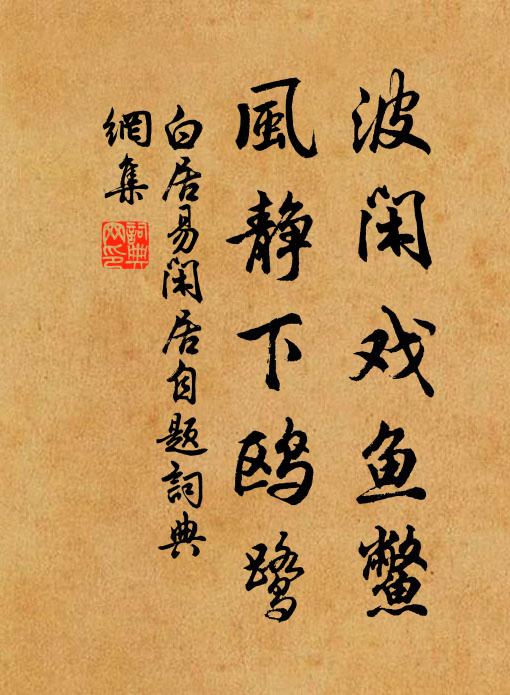 波闲戏鱼鳖
風静下鸥鹭
白居易闲居自题詞典
網集
詞典
网印